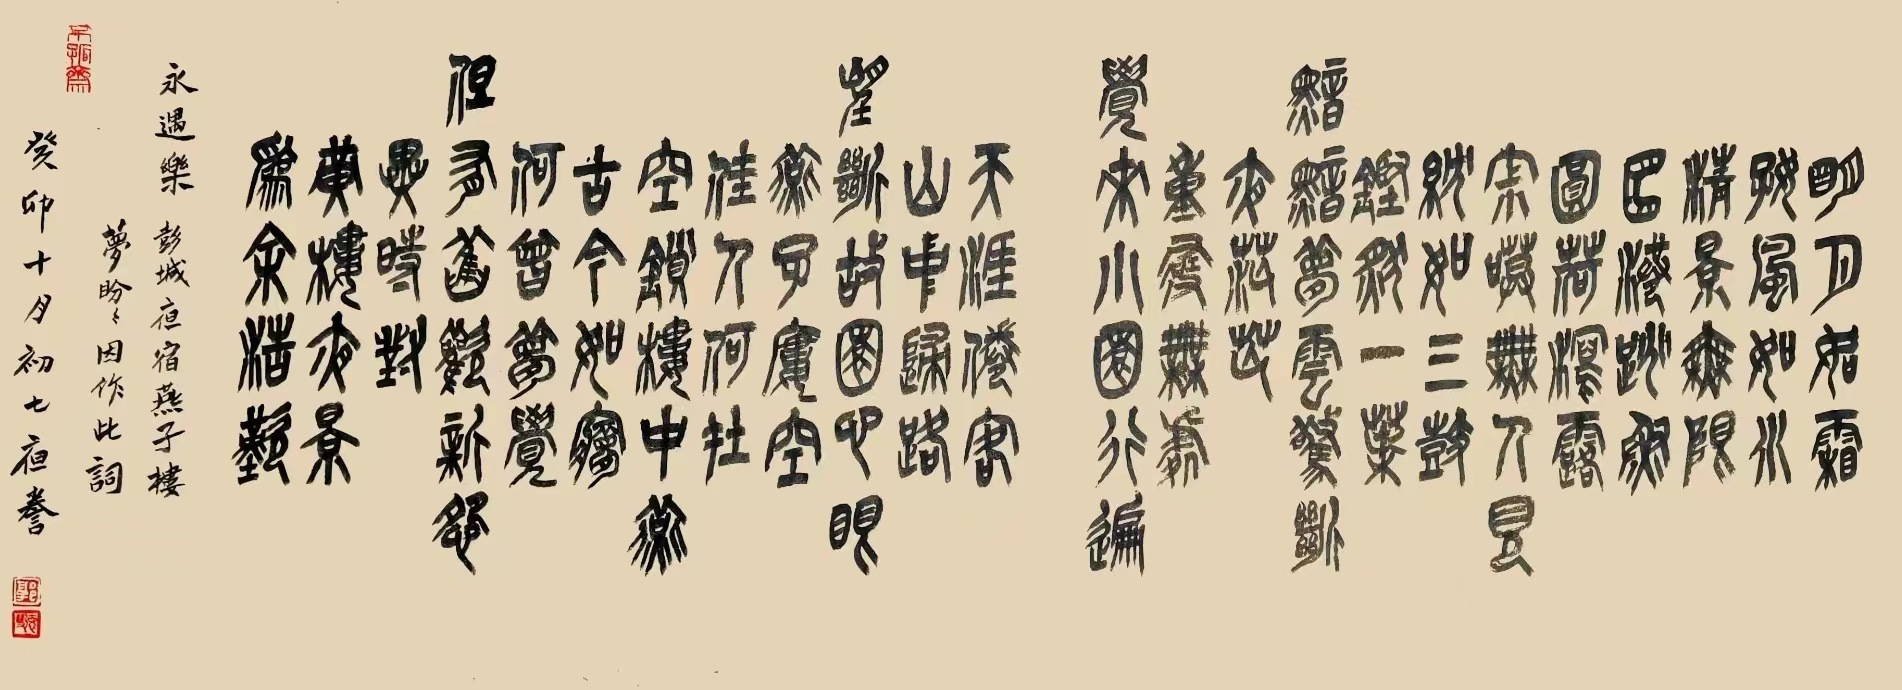 明月如霜
好風如水
清景無限
曲港跳魚
圓荷瀉露
寂寞無人見
紞如三鼓
鏗然一葉
黯黯夢雲驚斷
夜茫茫
重尋無處
覺來小園行遍
天涯倦客
山中歸路
望斷故園心眼
燕子樓空
佳人何在
空鎖樓中燕
古今如夢
何曾夢覺
但有舊歡新怨
異時對
黃樓夜景
為余浩歎
永遇樂 彭城夜宿燕子樓
夢盼〻因作此詞
癸卯十月初七夜誊